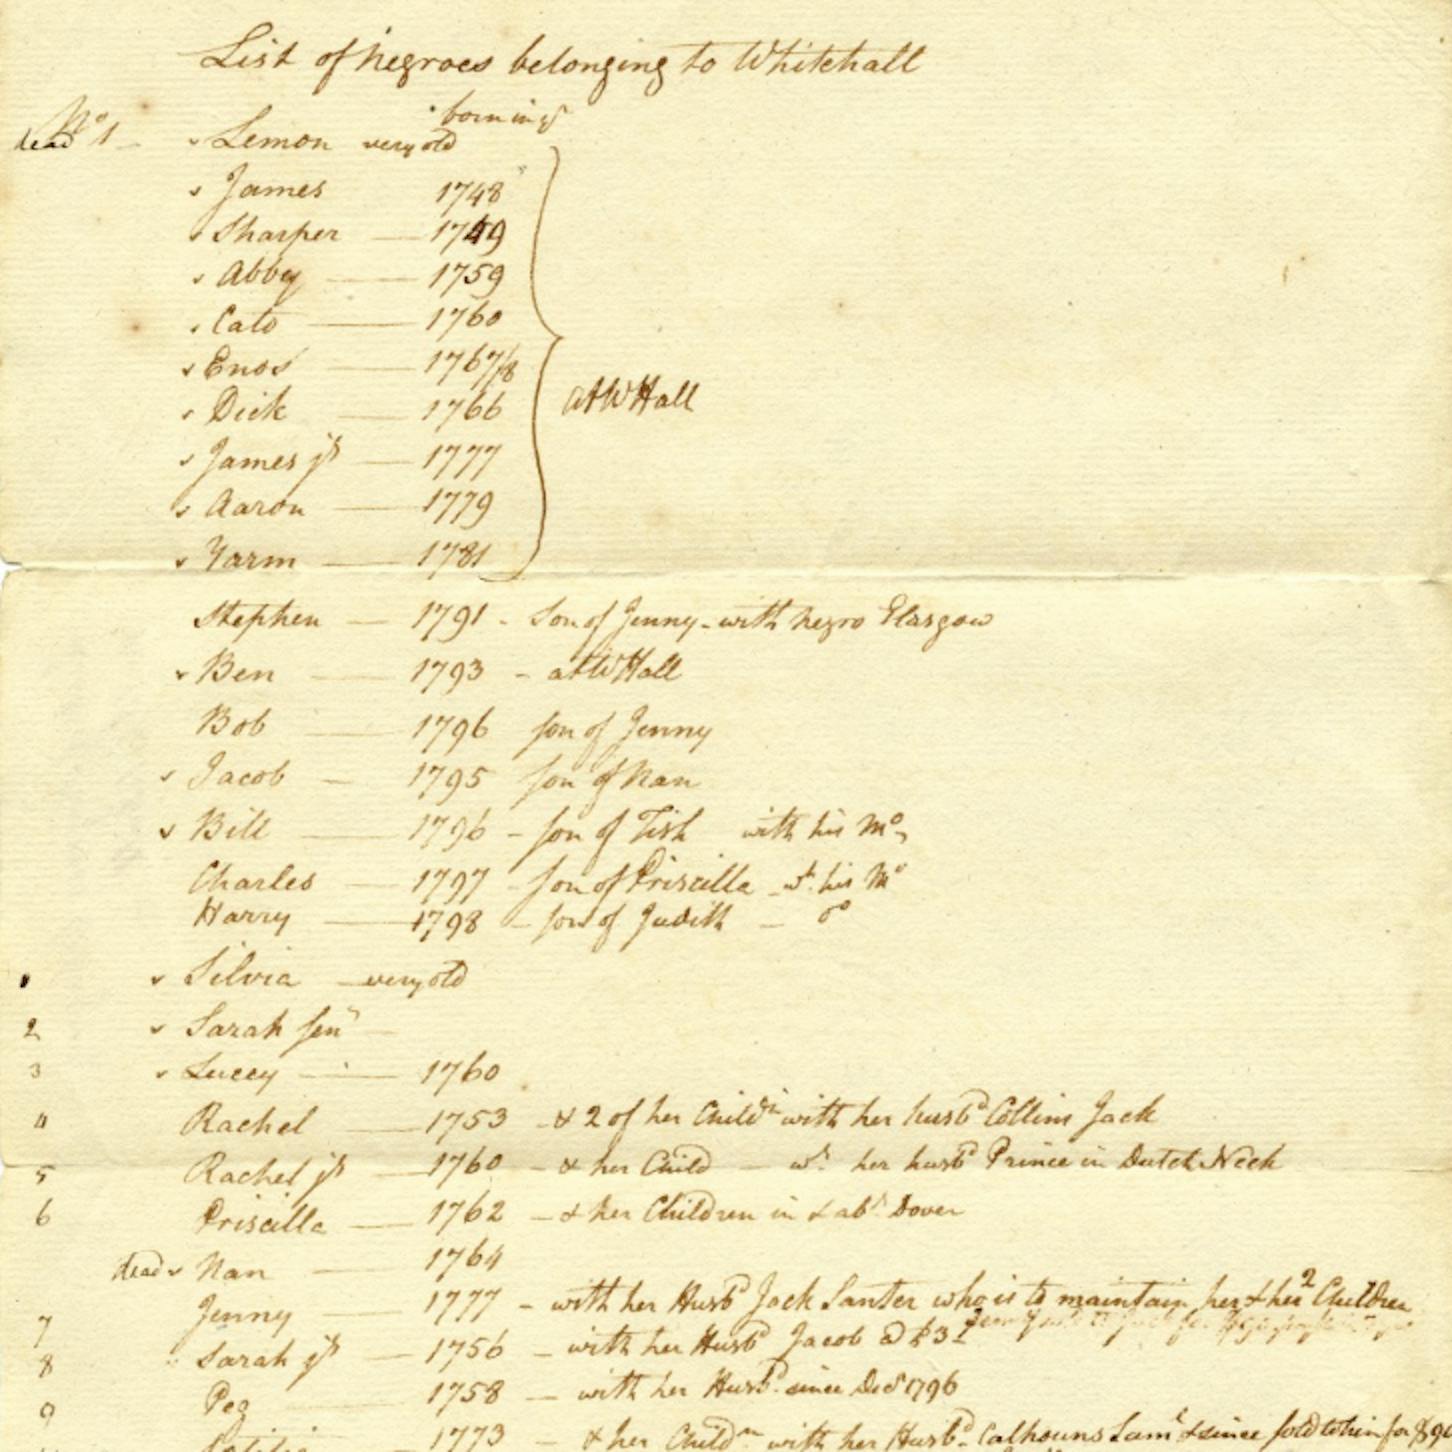 List of Negroes belonging to Whitehall
born in ye
dead No 1 - Lemon very old
James 1748
Sharper — 1749
Abby — 1759
Cato — 1760
Enos — 1767/8
Dick — 1766
at W Hall
James jr — 1777
Aaron — 1779
Yarm — 1781
Stephen — 1791 - Son of Jenny - with negro Glasgow
Ben — 1793 - at W Hall
Bob — 1796 son of Jenny
Jacob — 1795 son of Nan
Bill — 1796 - son of Tish with his Mo
Charles — 1797 - son of Priscilla wt. his Mo
Harry — 1798 - son of Judith - do
Silvia — very old
2 Sarah Senr —
3 Lucey — 1760
4 Rachel — 1753 - & 2 of her Childn with her husbd Collins Jack
5 Rachel jr — 1760 - & her Child — wt. her husbd Prince in Dutch Neck
6 Priscilla — 1762 - & her Children in & abt Dover
dead Nan — 1764
7 Jenny — 1777 - with her Husbd Jack Santer who is to maintain her & her 2 Children
8 Sarah jr — 1756 - with her Husbd Jacob @ £3
9 Peg 1758 — with her Husbd. since Decr 1796
1773 - & her Childn with her Husbd. Calhouns Saml & since sold to him for